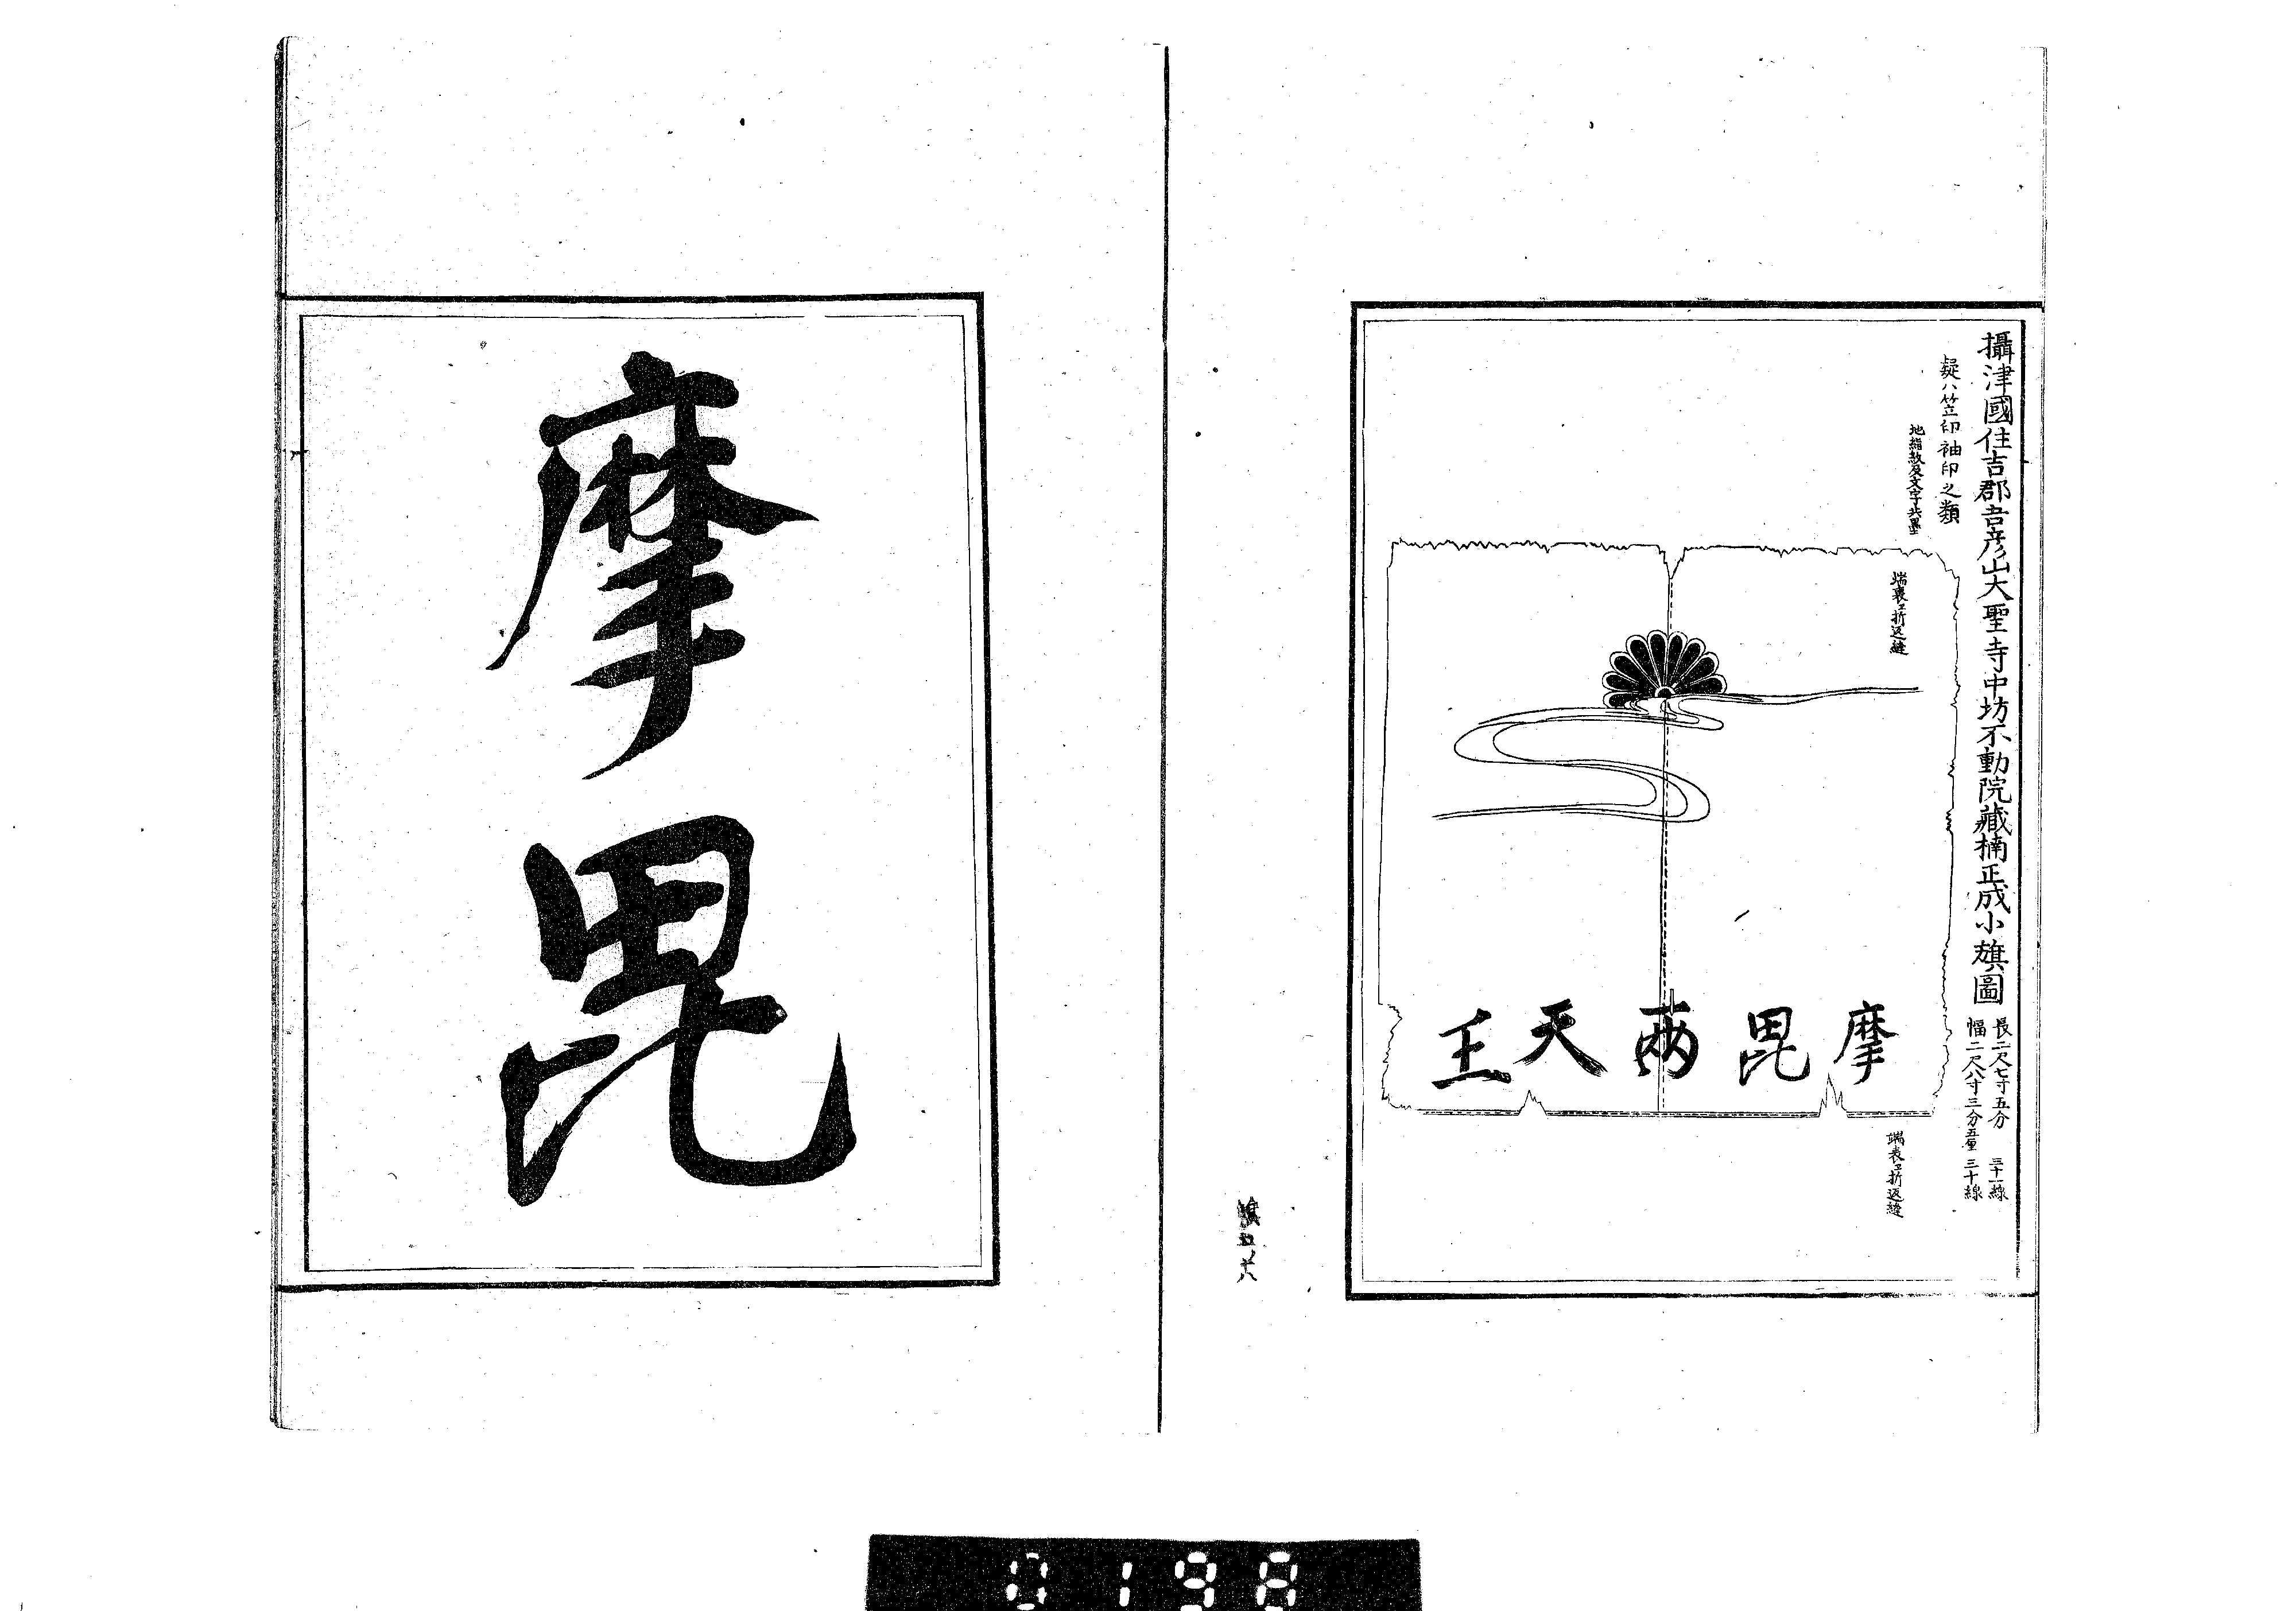 攝津國住吉郡吾彦山大聖寺中坊不動院藏楠正成小旗圖
長二尺七寸五分 三十一線
幅二尺八寸三分五厘 三十線
疑ハ笠印袖印之類
地絹紋及文字共墨
端裏ヱ折返縫
摩毘兩天王
端表ヱ折返縫
摩毘
0198